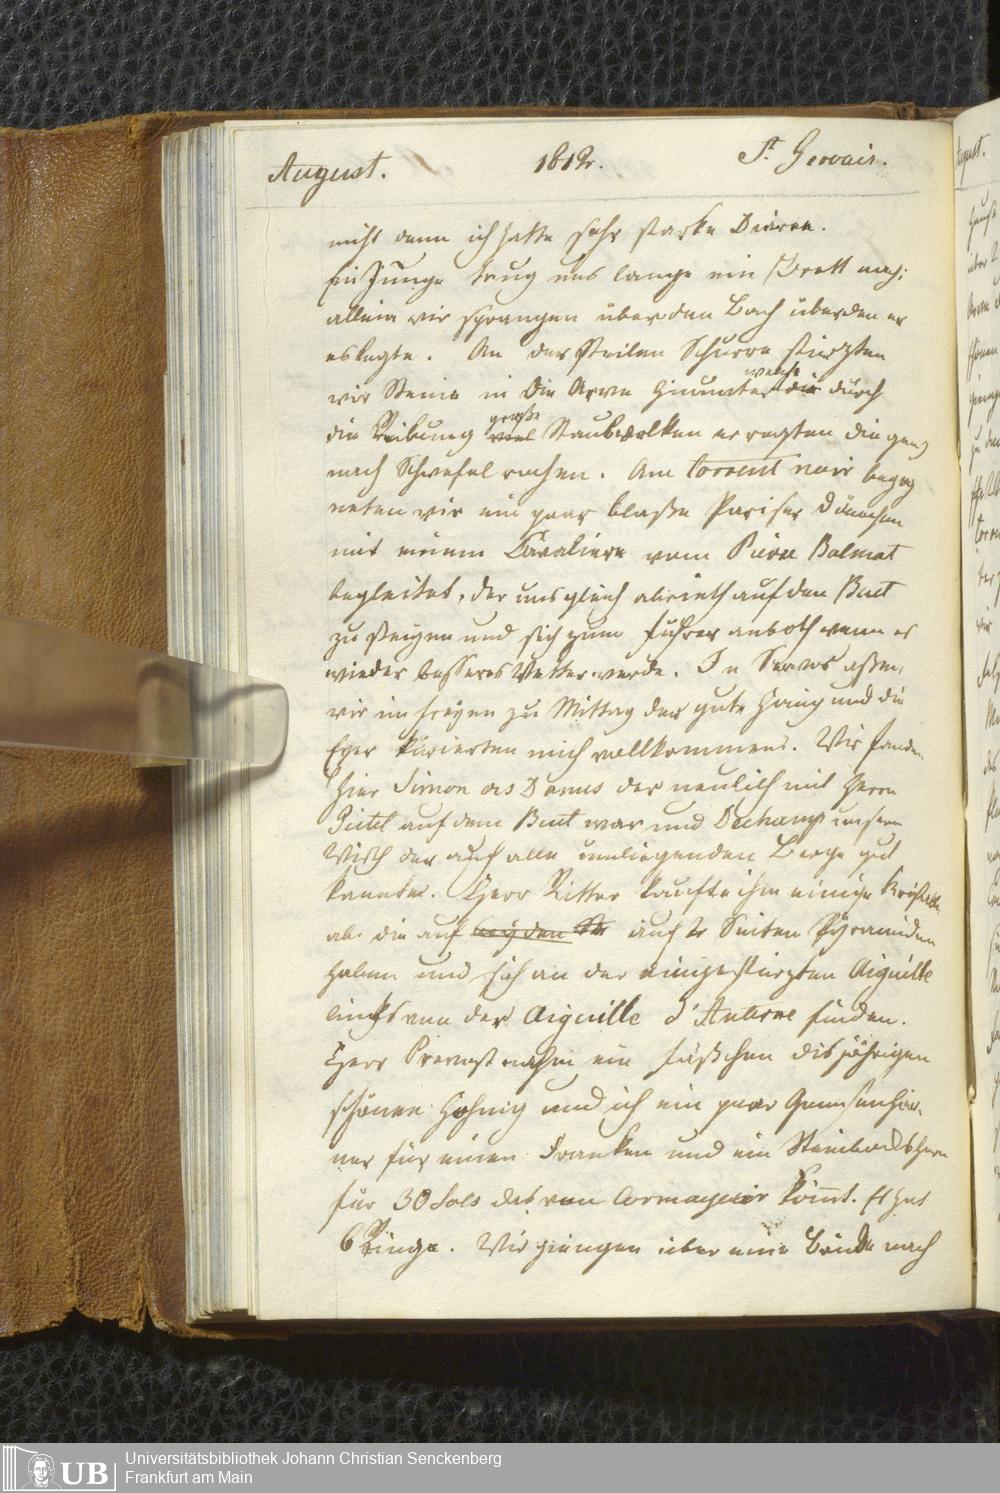 August. 1812. St. Gervais.
nicht denn ich hatte sehr starke Diaree.
Ein Junge trug uns lange ein Brett nach;
allein wir sprangen über den Bach über den er
es legte. An der steilen Schurre stürzten
wir Steine in die Arve hinunter welche die durch
die Reibung große viel Staubwolken erregten die ganz
nach Schwefel rochen. Am torrent noir begeg
neten wir ein paar blaße Pariser Dämchen
mit einem Cavaliere vom Pierre Balmat
begleitet, der uns gleich abrieth auf den Buet
zu steigen und sich zum Führer anboth wenn es
wieder besseres Wetter werde. In Servos aßen
wir im Freyen zu Mittag der gute Honig und die
Eyer kurierten mich vollkommen. Wir fanden
hier Simon der neulich mit Herrn
Pictet auf dem Buet war und Dechamp unsern
Wirth der auch alle umliegenden Berge gut
kannte. Herr Ritter kaufte ihm einige Kristalle
ab die auf beyden auch 2 Seiten Pyramiden
haben und sich an der eingestürzten Aiguille
links von der Aiguille d'Anterne finden.
Herr Prevost nahm ein Fäßchen disjährigen
schönen Hohnig und ich ein paar Gemsenhör-
ner für einen Franken und ein Steinbockshorn
für 30 Sols das von Cormayeur kömt. Es hat
6 Ringe. Wir giengen über eine Brücke nach
Universitätsbibliothek Johann Christian Senckenberg
UB Frankfurt am Main